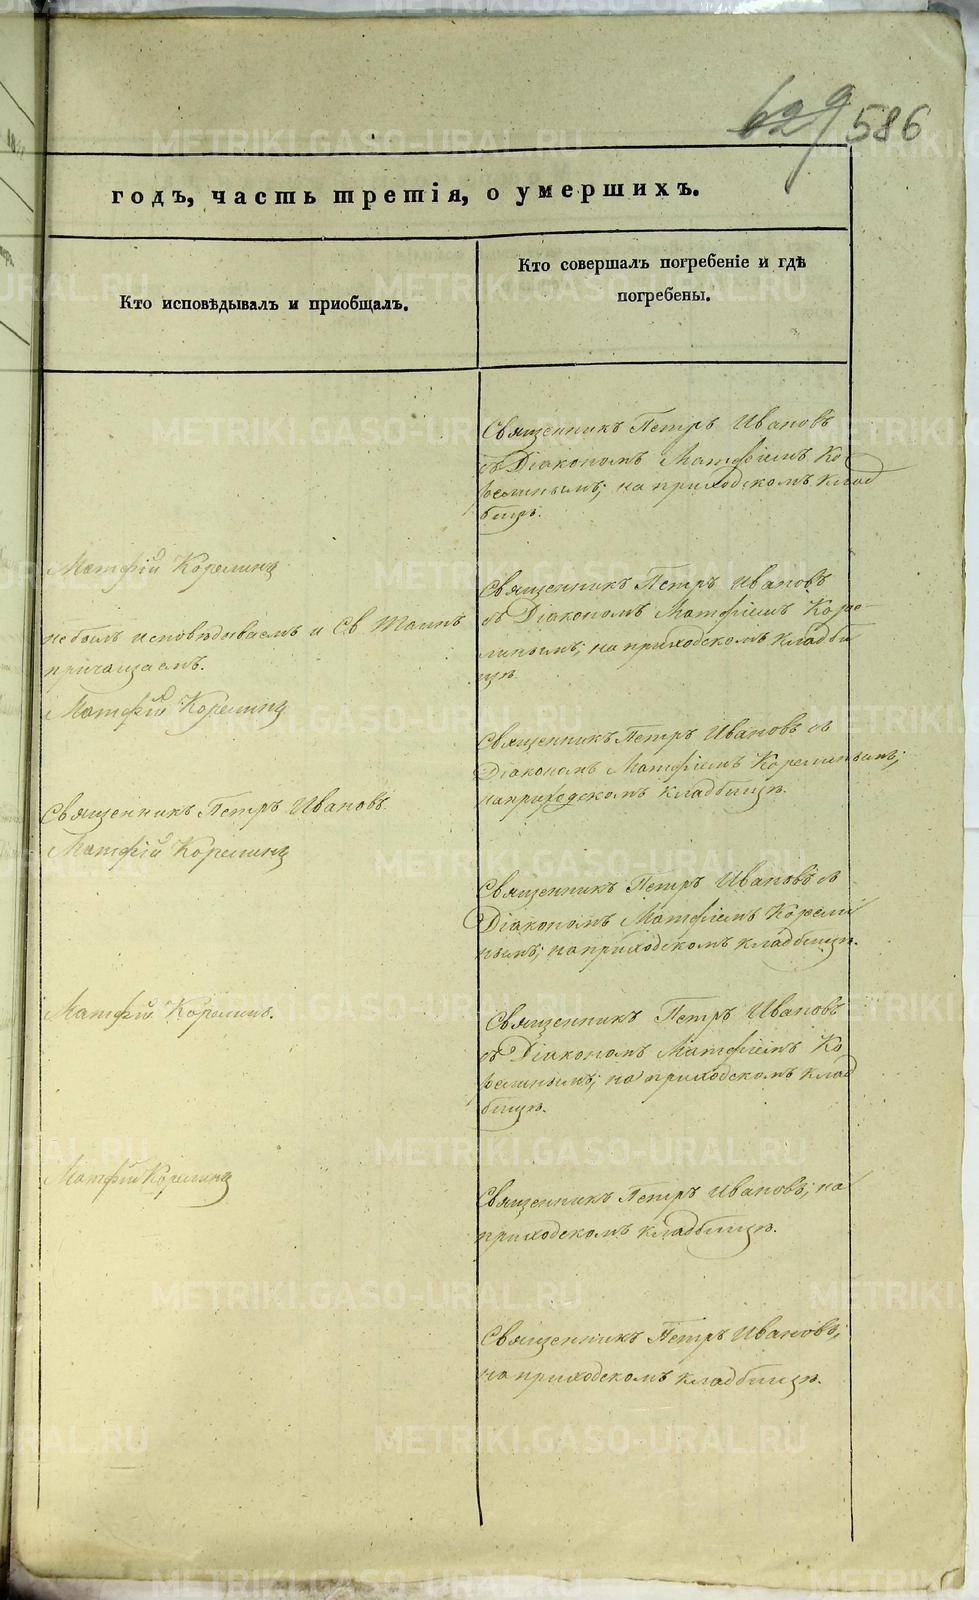 629 586
годъ, часть третія, о умершихъ.
Кто исповѣдывалъ и пріобщалъ.
Кто совершалъ погребеніе и гдѣ
погребены.
Священникъ Петръ Ивановъ
съ Діакономъ Матфіемъ Ко
релинымъ; на приходскомъ клад
бищѣ.
Матфій Корелинъ
Священникъ Петръ Ивановъ
съ Діакономъ Матфіемъ Коре-
линымъ; на приходскомъ кладби
щѣ.
небылъ исповѣдываемъ и Св Таинъ
причащаемъ.
Матфій Корелинъ
Священникъ Петръ Ивановъ съ
Діакономъ Матфіемъ Корелинымъ;
на приходскомъ кладбищѣ.
Священникъ Петръ Ивановъ
Матфій Корелинъ
Священникъ Петръ Ивановъ съ
Діакономъ Матфіемъ Корели
нымъ; на приходскомъ кладбищѣ.
Матфій Корелинъ.
Священникъ Петръ Ивановъ
съ Діакономъ Матфіемъ Ко
релинымъ; на приходскомъ клад
бищѣ.
Матфій Корелинъ
Священникъ Петръ Ивановъ; на
приходскомъ кладбищѣ.
Священникъ Петръ Ивановъ;
на приходскомъ кладбищѣ.
METRIKI.GASO-URAL.RU